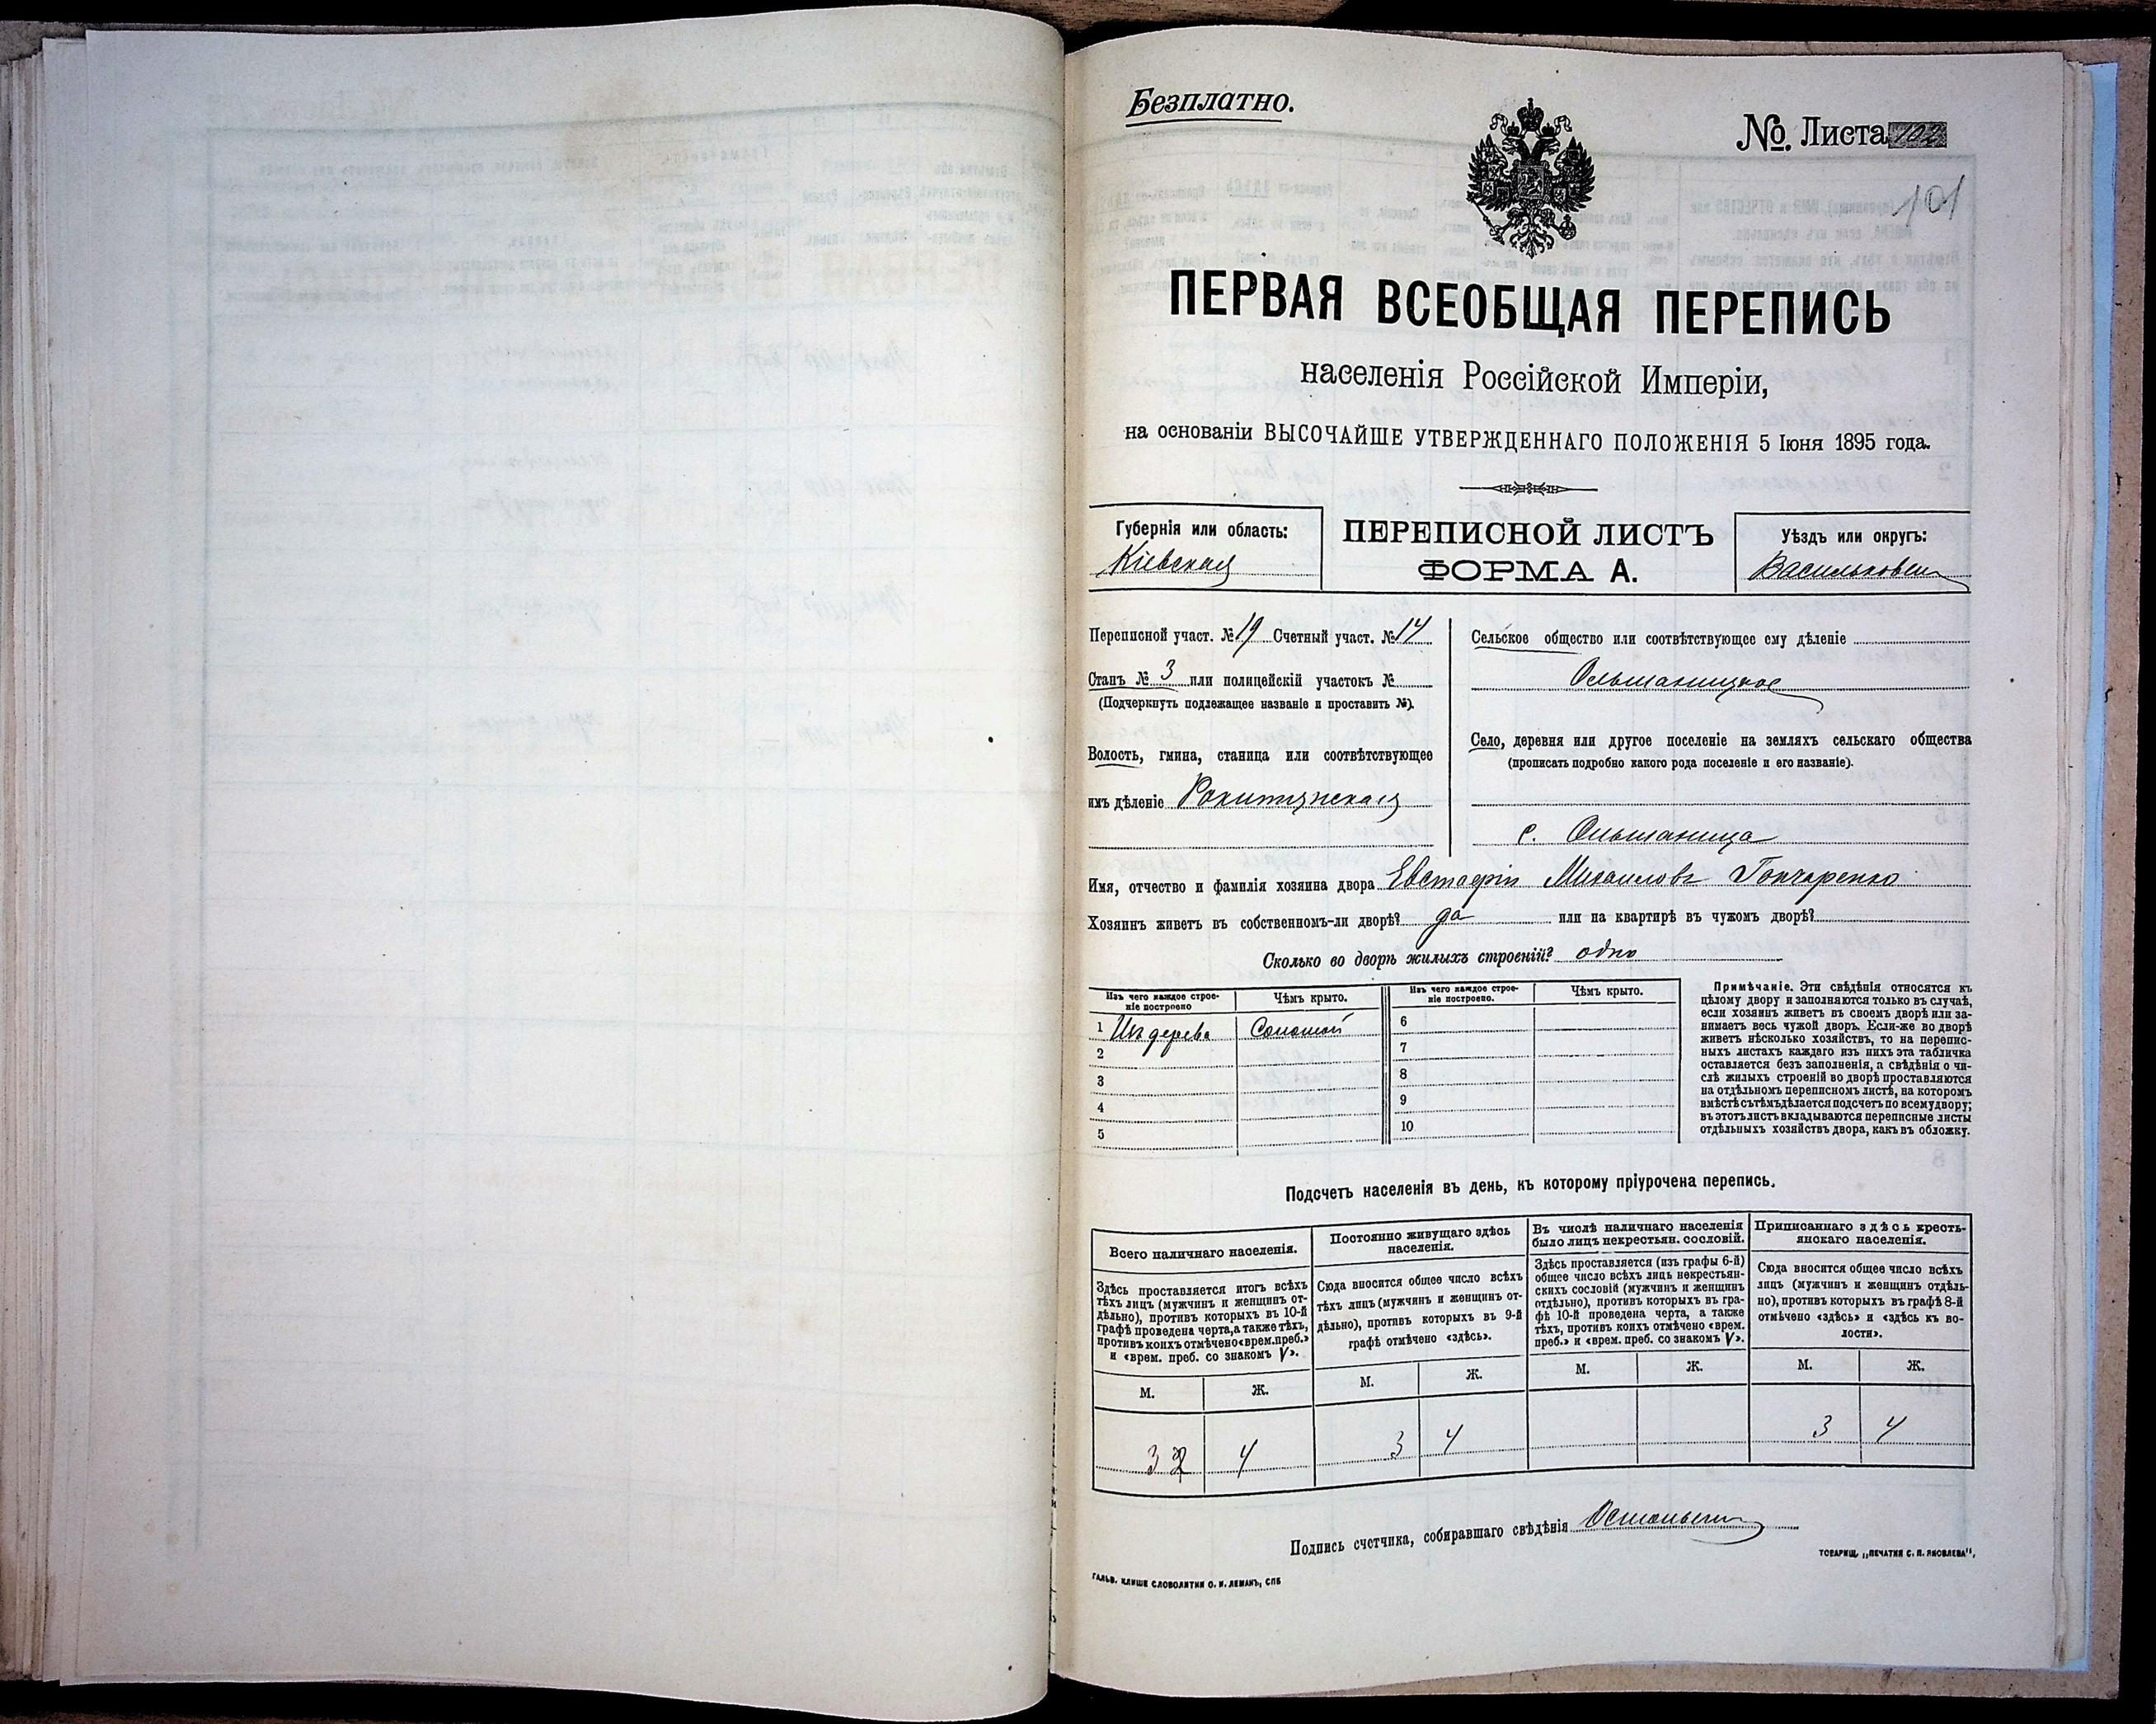 Безплатно.
№. Листа 102
101
ПЕРВАЯ ВСЕОБЩАЯ ПЕРЕПИСЬ
населенія Россійской Имперіи,
на основаніи ВЫСОЧАЙШЕ УТВЕРЖДЕННАГО ПОЛОЖЕНІЯ 5 Іюня 1895 года.
Губернія или область:
Кіевская
ПЕРЕПИСНОЙ ЛИСТЪ
ФОРМА А.
Уѣздъ или округъ:
Васильковск
Переписной участ. № 19 Счетный участ. № 14
Станъ № 3 или полицейскій участокъ №
(Подчеркнуть подлежащее названіе и проставить №).
Волость, гмина, станица или соотвѣтствующее
имъ дѣленіе Рокитянская
Сельское общество или соотвѣтствующее ему дѣленіе
Ольшаницкое
Село, деревня или другое поселеніе на земляхъ сельскаго общества
(прописать подробно какого рода поселеніе и его названіе).
с. Ольшаница
Имя, отчество и фамилія хозяина двора Евстафій Михаиловъ Гончаренко
Хозяинъ живетъ въ собственномъ-ли дворѣ? да или на квартирѣ въ чужомъ дворѣ?
Сколько во дворѣ жилыхъ строеній? одно
Изъ чего каждое строе-
ніе построено
Чѣмъ крыто.
Изъ чего каждое строе-
ніе построено.
Чѣмъ крыто.
1 Изъ дерева Соломой
2
3
4
5
6
7
8
9
10
Примѣчаніе. Эти свѣдѣнія относятся къ
цѣлому двору и заполняются только въ случаѣ,
если хозяинъ живетъ въ своемъ дворѣ или за-
нимаетъ весь чужой дворъ. Если-же во дворѣ
живетъ нѣсколько хозяйствъ, то на перепис-
ныхъ листахъ каждаго изъ нихъ эта табличка
оставляется безъ заполненія, а свѣдѣнія о чи-
слѣ жилыхъ строеній во дворѣ проставляются
на отдѣльномъ переписномъ листѣ, на которомъ
вмѣстѣ съ тѣмъ дѣлается подсчетъ по всему двору;
въ этотъ листъ вкладываются переписные листы
отдѣльныхъ хозяйствъ двора, какъ въ обложку.
Подсчетъ населенія въ день, къ которому пріурочена перепись.
Всего наличнаго населенія.
Здѣсь проставляется итогъ всѣхъ
тѣхъ лицъ (мужчинъ и женщинъ от-
дѣльно), противъ которыхъ въ 10-й
графѣ проведена черта, а также тѣхъ,
противъ коихъ отмѣчено «врем. преб.»
и «врем. преб. со знакомъ V».
М. Ж.
3 2 4
Постоянно живущаго здѣсь
населенія.
Сюда вносится общее число всѣхъ
тѣхъ лицъ (мужчинъ и женщинъ от-
дѣльно), противъ которыхъ въ 9-й
графѣ отмѣчено «здѣсь».
М. Ж.
3 4
Въ числѣ наличнаго населенія
было лицъ некрестьян. сословій.
Здѣсь проставляется (изъ графы 6-й)
общее число всѣхъ лицъ некрестьян-
скихъ сословій (мужчинъ и женщинъ
отдѣльно), противъ которыхъ въ гра-
фѣ 10-й проведена черта, а также
тѣхъ, противъ коихъ отмѣчено «врем.
преб.» и «врем. преб. со знакомъ V».
М. Ж.
Приписаннаго здѣсь кресть-
янскаго населенія.
Сюда вносится общее число всѣхъ
лицъ (мужчинъ и женщинъ отдѣль-
но), противъ которыхъ въ графѣ 8-й
отмѣчено «здѣсь» и «здѣсь къ во-
лости».
М. Ж.
3 4
Подпись счетчика, собиравшаго свѣдѣнія
ГАЛЬВ. КЛИШЕ СЛОВОЛИТНИ О. И. ЛЕМАНЪ, СПБ
ТОВАРИЩ. „ПЕЧАТНЯ С. П. ЯКОВЛЕВА",